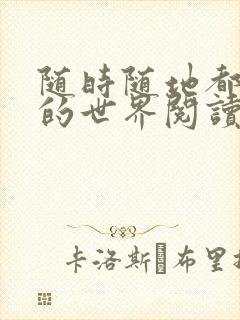 随時随地都
的世界閱讀
卡洛斯 布里